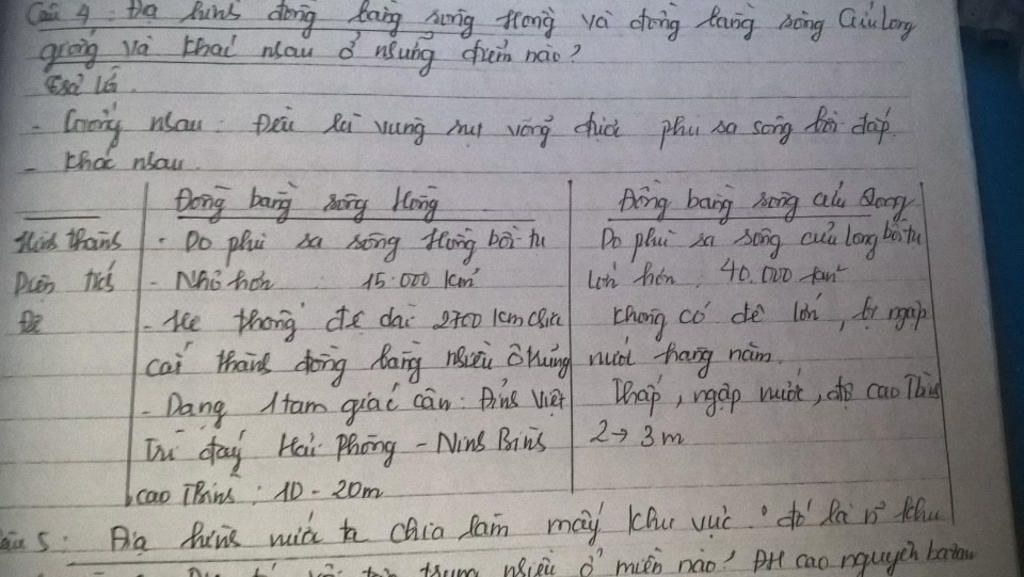 Câu 4: Địa hình đồng bằng sông Hồng và đồng bằng sông Cửu Long
giống và khác nhau ở những điểm nào?
Trả lời.
- Giống nhau: Đều là vùng sụt võng được phù sa sông bồi đắp.
- Khác nhau.
Đồng bằng sông Hồng
Đồng bằng sông Cửu Long
Hình thành
- Do phù sa sông Hồng bồi tụ
Do phù sa sông cửu long bồi tụ
Diện tích
- Nhỏ hơn : 15.000 km²
Lớn hơn : 40.000 km²
- Hệ thống đê dài 2700 km chia
Không có đê lớn, bị ngập
cắt thành đồng bằng nhiều ô trũng
nước hàng năm.
- Dạng 1 tam giác cân: Đỉnh Việt
Thấp, ngập nước, độ cao TBình
Trì đáy Hải Phòng - Ninh Bình
2 → 3 m
cao TBình : 10 - 20m
Câu 5: Địa hình nước ta chia làm mấy khu vực. đó là n~ khu
trung nhiều ở miền nào? ĐH cao nguyên bazan